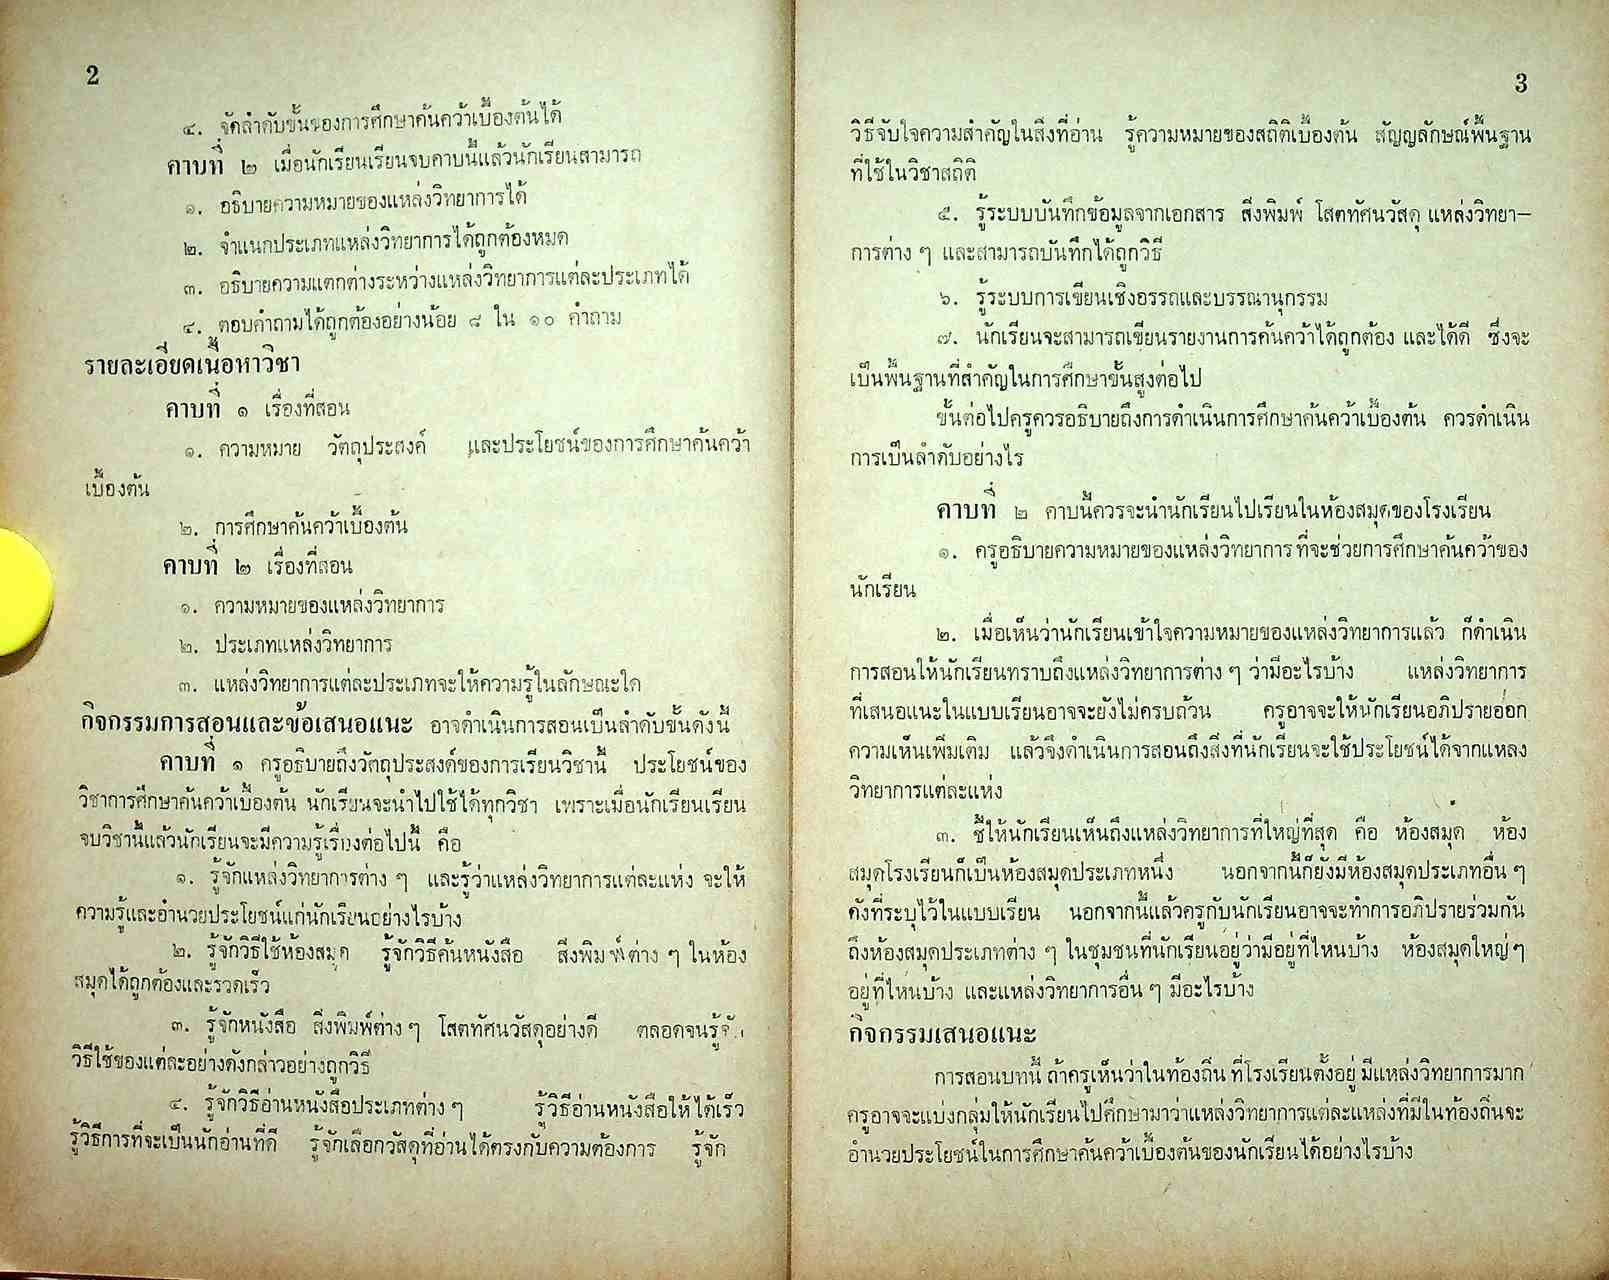 2
๔. จัดลำดับขั้นของการศึกษาค้นคว้าเบื้องต้นได้
คาบที่ ๒ เมื่อนักเรียนเรียนจบคาบนี้แล้วนักเรียนสามารถ
๑. อธิบายความหมายของแหล่งวิทยาการได้
๒. จำแนกประเภทแหล่งวิทยาการได้ถูกต้องหมด
๓. อธิบายความแตกต่างระหว่างแหล่งวิทยาการแต่ละประเภทได้
๔. ตอบคำถามได้ถูกต้องอย่างน้อย ๘ ใน ๑๐ คำถาม
รายละเอียดเนื้อหาวิชา
คาบที่ ๑ เรื่องที่สอน
๑. ความหมาย วัตถุประสงค์ และประโยชน์ของการศึกษาค้นคว้า
เบื้องต้น
๒. การศึกษาค้นคว้าเบื้องต้น
คาบที่ ๒ เรื่องที่สอน
๑. ความหมายของแหล่งวิทยาการ
๒. ประเภทแหล่งวิทยาการ
๓. แหล่งวิทยาการแต่ละประเภทจะให้ความรู้ในลักษณะใด
กิจกรรมการสอนและข้อเสนอแนะ อาจดำเนินการสอนเป็นลำดับขั้นดังนี้
คาบที่ ๑ ครูอธิบายถึงวัตถุประสงค์ของการเรียนวิชานี้ ประโยชน์ของ
วิชาการศึกษาค้นคว้าเบื้องต้น นักเรียนจะนำไปใช้ได้ทุกวิชา เพราะเมื่อนักเรียนเรียน
จบวิชานี้แล้วนักเรียนจะมีความรู้เรื่องต่อไปนี้ คือ
๑. รู้จักแหล่งวิทยาการต่าง ๆ และรู้ว่าแหล่งวิทยาการแต่ละแห่ง จะให้
ความรู้และอำนวยประโยชน์แก่นักเรียนอย่างไรบ้าง
๒. รู้จักวิธีใช้ห้องสมุด รู้จักวิธีค้นหนังสือ สิ่งพิมพ์ต่าง ๆ ในห้อง
สมุดได้ถูกต้องและรวดเร็ว
๓. รู้จักหนังสือ สิ่งพิมพ์ต่าง ๆ โสตทัศนวัสดุอย่างดี ตลอดจนรู้จัก
วิธีใช้ของแต่ละอย่างดังกล่าวอย่างถูกวิธี
๔. รู้จักวิธีอ่านหนังสือประเภทต่าง ๆ รู้วิธีอ่านหนังสือให้ได้เร็ว
รู้วิธีการที่จะเป็นนักอ่านที่ดี รู้จักเลือกวัสดุที่อ่านได้ตรงกับความต้องการ รู้จัก
3
วิธีจับใจความสำคัญในสิ่งที่อ่าน รู้ความหมายของสถิติเบื้องต้น สัญญลักษณ์พื้นฐาน
ที่ใช้ในวิชาสถิติ
๕. รู้ระบบบันทึกข้อมูลจากเอกสาร สิ่งพิมพ์ โสตทัศนวัสดุ แหล่งวิทยา-
การต่าง ๆ และสามารถบันทึกได้ถูกวิธี
๖. รู้ระบบการเขียนเชิงอรรถและบรรณานุกรรม
๗. นักเรียนจะสามารถเขียนรายงานการค้นคว้าได้ถูกต้อง และได้ดี ซึ่งจะ
เป็นพื้นฐานที่สำคัญในการศึกษาขั้นสูงต่อไป
ขั้นต่อไปครูควรอธิบายถึงการดำเนินการศึกษาค้นคว้าเบื้องต้น ควรดำเนิน
การเป็นลำดับอย่างไร
คาบที่ ๒ คาบนี้ควรจะนำนักเรียนไปเรียนในห้องสมุดของโรงเรียน
๑. ครูอธิบายความหมายของแหล่งวิทยาการ ที่จะช่วยการศึกษาค้นคว้าของ
นักเรียน
๒. เมื่อเห็นว่านักเรียนเข้าใจความหมายของแหล่งวิทยาการแล้ว ก็ดำเนิน
การสอนให้นักเรียนทราบถึงแหล่งวิทยาการต่าง ๆ ว่ามีอะไรบ้าง แหล่งวิทยาการ
ที่เสนอแนะในแบบเรียนอาจจะยังไม่ครบถ้วน ครูอาจจะให้นักเรียนอภิปรายออก
ความเห็นเพิ่มเติม แล้วจึงดำเนินการสอนถึงสิ่งที่นักเรียนจะใช้ประโยชน์ได้จากแหลง
วิทยาการแต่ละแห่ง
๓. ชี้ให้นักเรียนเห็นถึงแหล่งวิทยาการที่ใหญ่ที่สุด คือ ห้องสมุด ห้อง
สมุดโรงเรียนก็เป็นห้องสมุดประเภทหนึ่ง นอกจากนี้ก็ยังมีห้องสมุดประเภทอื่น ๆ
ดังที่ระบุไว้ในแบบเรียน นอกจากนี้แล้วครูกับนักเรียนอาจจะทำการอภิปรายร่วมกัน
ถึงห้องสมุดประเภทต่าง ๆ ในชุมชนที่นักเรียนอยู่ว่ามีอยู่ที่ไหนบ้าง ห้องสมุดใหญ่ ๆ
อยู่ที่ไหนบ้าง และแหล่งวิทยาการอื่น ๆ มีอะไรบ้าง
กิจกรรมเสนอแนะ
การสอนบทนี้ ถ้าครูเห็นว่าในท้องถิ่น ที่โรงเรียนตั้งอยู่ มีแหล่งวิทยาการมาก
ครูอาจจะแบ่งกลุ่มให้นักเรียนไปศึกษามาว่าแหล่งวิทยาการแต่ละแหล่งที่มีในท้องถิ่นจะ
อำนวยประโยชน์ในการศึกษาค้นคว้าเบื้องต้นของนักเรียนได้อย่างไรบ้าง